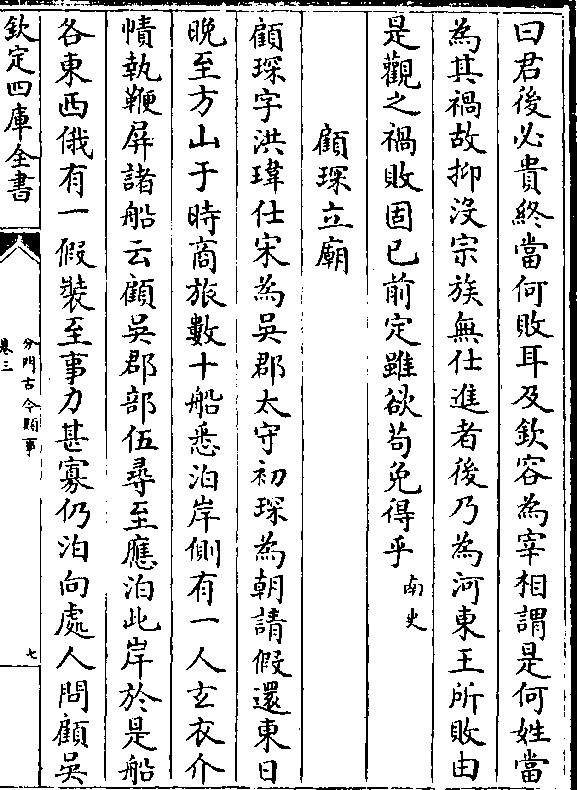 曰君後必貴終當何敗耳及欽容為宰相謂是何姓當
為其禍故抑沒宗族無仕進者後乃為河東王所敗由
是觀之禍敗固已前定雖欲苟免得乎南史
顧琛立廟
顧琛字洪瑋仕宋為吳郡太守初琛為朝請假還東日
晚至方山于時商旅數十船悉泊岸側有一人玄衣介
幘執鞭屏諸船云顧吳郡部伍尋至應泊此岸於是船
各東西俄有一假裝至事力甚寡仍泊向處人問顧吳
欽定四庫全書
分門古今類事
卷三
七